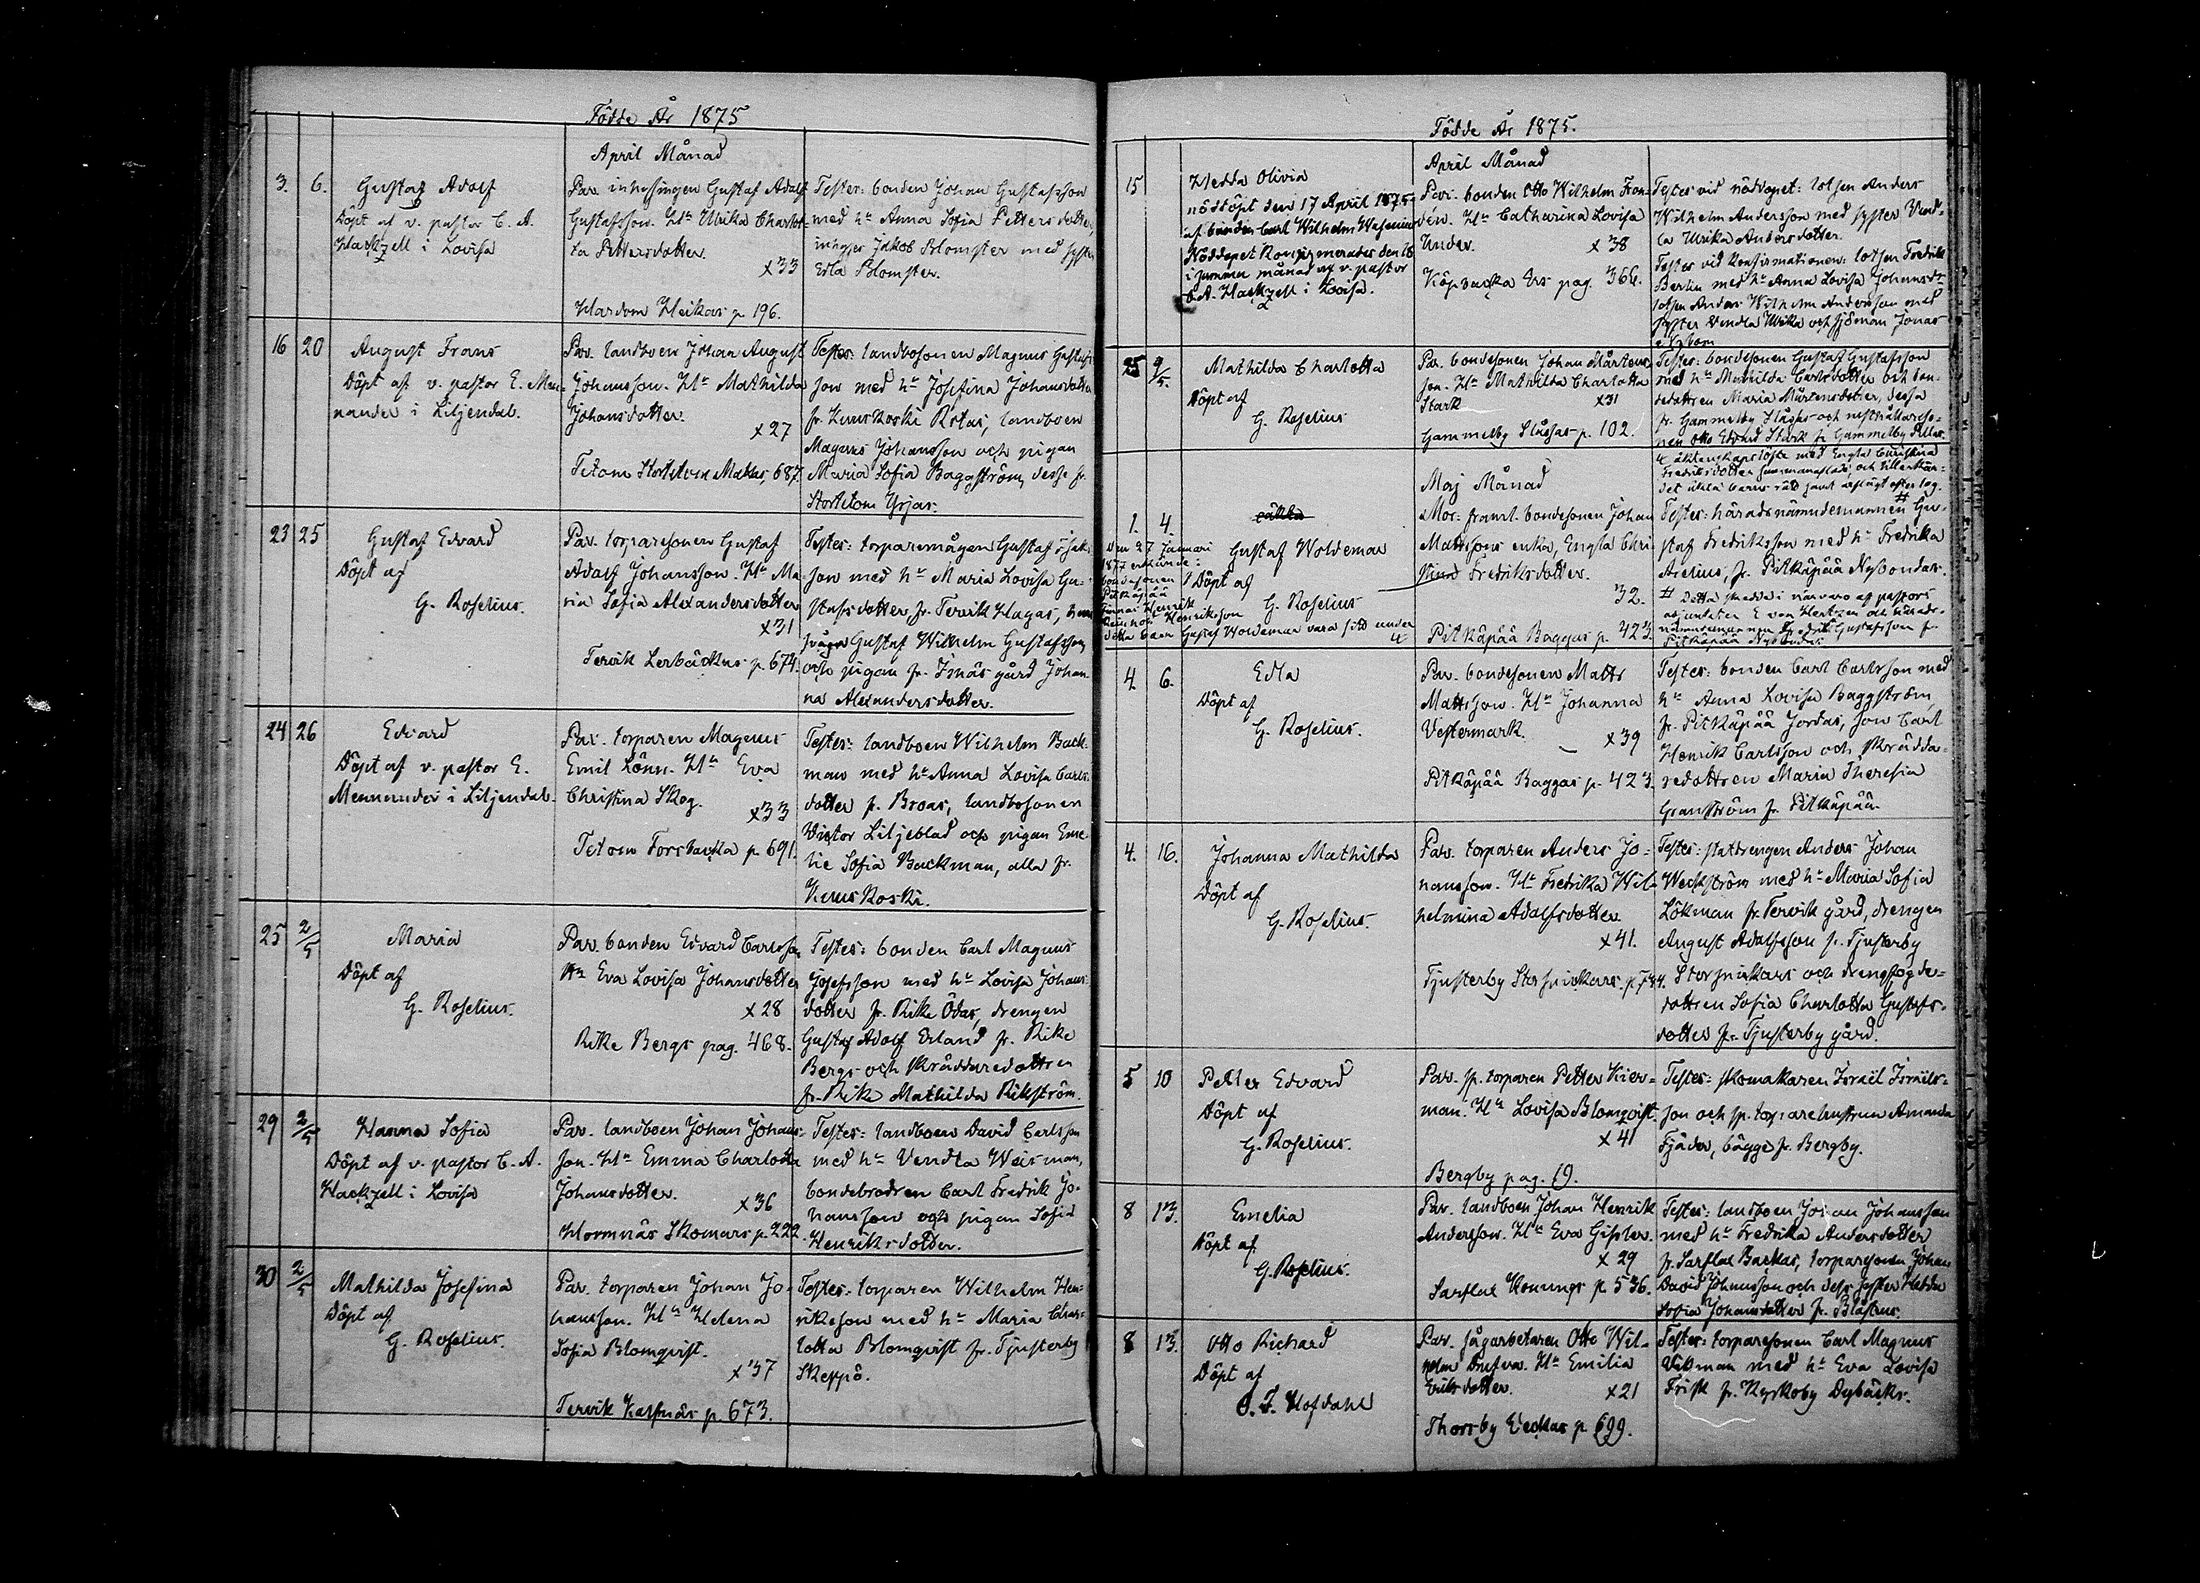 Födde År 1875
April Månad
3. 6. Gustaf Adolf
Döpt af v. pastor C. A.
Hackzell i Lovisa
Par. inhysingen Gustaf Adolf
Gustafsson. H:u Ulrika Charlot-
ta Pettersdotter.
x33
Hardom Heikas p 196.
Testes: bonden Johan Gustafsson
med h: Anna Sofia Pettersdotter,
inhyses Jakob Blomster med syster
Edla Blomster.
16 20 August Frans
Döpt af v. pastor E. Men-
nander i Liljendal.
Par. landboen Johan August
Johansson. H:u Mathilda
Johansdotter.
x27
Tetom Stortetom Mattas, 687.
Testes: landbosonen Magnus Gustafs-
son med h: Josefina Johansdotter
fr. Kuuskoski Rotas, landboen
Magnus Johansson och pigan
Maria Sofia Baggström, desse fr.
Stortetom Yrjas.
23 25 Gustaf Edvard
Döpt af
G. Roselius.
Par. torparesonen Gustaf
Adolf Johansson. H:u Ma-
ria Sofia Alexandersdotter
x31
Tervik Lerbäckas p. 674.
Testes: torparemågen Gustaf
son med h: Maria Lovisa Gu-
stafsdotter, fr. Tervik Hagas,
svågen Gustaf Wilhelm Gustafsson
och pigan fr. gård Johan-
na Alexandersdotter.
24 26 Edvard
Döpt af v. pastor E.
Mennander i Liljendal.
Par. torparen Magnus
Emil Lönn. H:u Eva
Christina Skog.
x33
Tetom Forsbacka p 691.
Testes: landboen Wilhelm Back-
man med h: Anna Lovisa Carls-
dotter fr. Broas, landbosonen
Victor Liljeblad och pigan Eme-
lie Sofia Backman, alla fr.
Kuuskoski.
25 2/5 Maria
Döpt af
G. Roselius.
Par. bonden Edvard Carlsson
H:u Eva Lovisa Johansdotter
x28
Rike Bergs pag. 468.
Testes: bonden Carl Magnus
Josefsson med h: Lovisa Johans-
dotter fr. Rike Ödas, drengen
Gustaf Adolf Erland fr. Rike
Bergs och skräddaredottren
fr. Rike Mathilda Rikström.
29 2/5 Hanna Sofia
Döpt af v. pastor C. A.
Hackzell i Lovisa
Par. landboen Johan Johans-
son. H:u Emma Charlotta
Johansdotter.
x36
Hormnäs Skomars p. 222.
Testes: landboen David Carlsson
med h: Vendla Weisman,
bondebrodren Carl Fredrik Jo-
hansson och pigan Sofia
Henriksdotter.
30 2/5 Mathilda Josefina
Döpt af
G. Roselius.
Par. torparen Johan Jo-
hansson. H:u Helena
Sofia Blomqvist.
x37
Tervik Kalfnäs p. 673.
Testes: torparen Wilhelm Hen-
riksson med h: Maria Char-
lotta Blomqvist fr. Tjusterby
Skeppö.
Födde År 1875.
April Månad
15 Hedda Olivia
nöddöpt den 17 April 1875
af bonden Carl Wilhelm
Nöddopet konfirmerades den 18
i samma månad af v. pastor
C. A. Hackzell i Lovisa.
Par. bonden Otto Wilhelm Fran-
dén. H:u Catharina Lovisa
Under.
x 38
Köpbacka Ers pag. 366.
Testes vid nöddopet: lotsen Anders
Wilhelm Andersson med syster Vend-
la Ulrika Andersdotter.
Testes vid konfirmationen: lotsen Fredrik
Berlin med h: Anna Lovisa Johansd:r
lotsen Anders Wilhelm Andersson med
syster Vendla Ulrika och sjöman Jonas
25 2/5. Mathilda Charlotta
Döpt af
G. Roselius
Par. bondesonen Johan Mårtens-
son. H:u Mathilda Charlotta
Stark
x31
Gammelby Slåssas p. 102.
Testes: bondesonen Gustaf Gustafsson
med h: Mathilda Carlsdotter och bon-
dedottren Maria Mårtensdotter, dessa
fr. Gammelby Slåssas och
Otto Edvard Stark fr. Gammelby
äktenskapslöfte med Engla Christina
Fredriksdotter
Maj Månad
1. 4. oäkta
Gustaf Woldemar
Döpt af
G. Roselius
Den 27 Januari
1877 erkände
bondesonen
Pitkäpää
Henrik
Henriksson
detta barn Gustaf Woldemar vara född under
Mor: framl. bondesonen Johan
Mattssons enka, Engla Chri-
stina Fredriksdotter.
32.
Pitkäpää Baggas p. 423.
Testes: häradsnämndemannen Gu-
staf Fredriksson med h: Fredrika
Arelius, fr. Pitkäpää Nybondas.
# Detta skedde i närvaro af pastors
adjunkten E von Hertzen och härads-
nämndemannen Gustafsson fr.
Pitkäpää Nybondas.
4. 6. Edla
Döpt af
G. Roselius.
Par. bondesonen Matts
Mattsson. H:u Johanna
Vestermark.
x39
Pitkäpää Baggas p. 423.
Testes: bonden Carl Carlsson med
h: Anna Lovisa Baggström
fr. Pitkäpää Jordas, son Carl
Henrik Carlsson och skrädda-
redottren Maria Theresia
Granström fr. Pitkäpää.
4. 16. Johanna Mathilda
Döpt af
G. Roselius.
Par. torparen Anders Jo-
hansson. H:u Fredrika Wil-
helmina Adolfsdotter.
x41.
Tjusterby Storsnickars p. 744.
Testes: statdrengen Anders Johan
Weckström med h: Maria Sofia
Lökman fr. Tervik gård, drengen
August Adolfsson fr. Tjusterby
Storsnickars och drengfogde-
dottren Sofia Charlotta Gustafs-
dotter fr. Tjusterby gård.
5 10 Petter Edvard
Döpt af
G. Roselius.
Par. sp. torparen Petter Kier-
man. H:u Lovisa Blomqvist.
x 41
Bergby pag. 19.
Testes: skomakaren Israel Israels-
son och sp. torparehustrun Amanda
Fjäder, bägge fr. Bergby.
8 13. Emelia
Döpt af
G. Roselius.
Par. landboen Johan Henrik
Andersson. H:u Eva Gisler.
x 29
Sarflax Konungs p. 536.
Testes: landboen Johan Johansson
med h: Fredrika Andersdotter
fr. Sarflax Backas, torparesonen Johan
David Johansson och dess syster Hedda
Sofia Johansdotter fr.
8 13. Otto Richard
Döpt af
O. F. Hofdahl
Par. sågarbetaren Otto Wil-
helm Dufva. H:u Emilia
Eriksdotter.
x21
Thorsby Veckas p 699.
Testes: torparesonen Carl Magnus
Vikman med h: Eva Lovisa
Frisk fr. Kyrkoby Dybäcks.